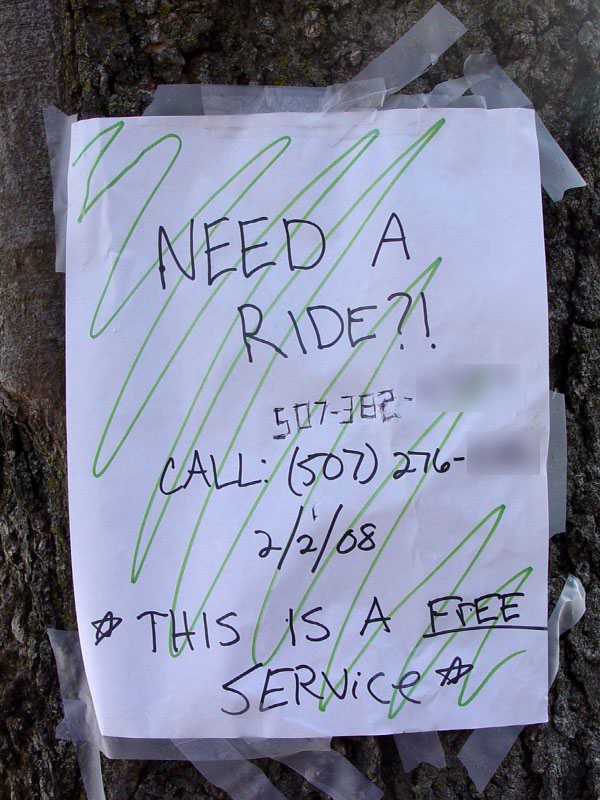 NEED A
RIDE?!
507-382-
CALL: (507) 276-
2/2/08
☆ THIS IS A FREE
SERViCe ☆